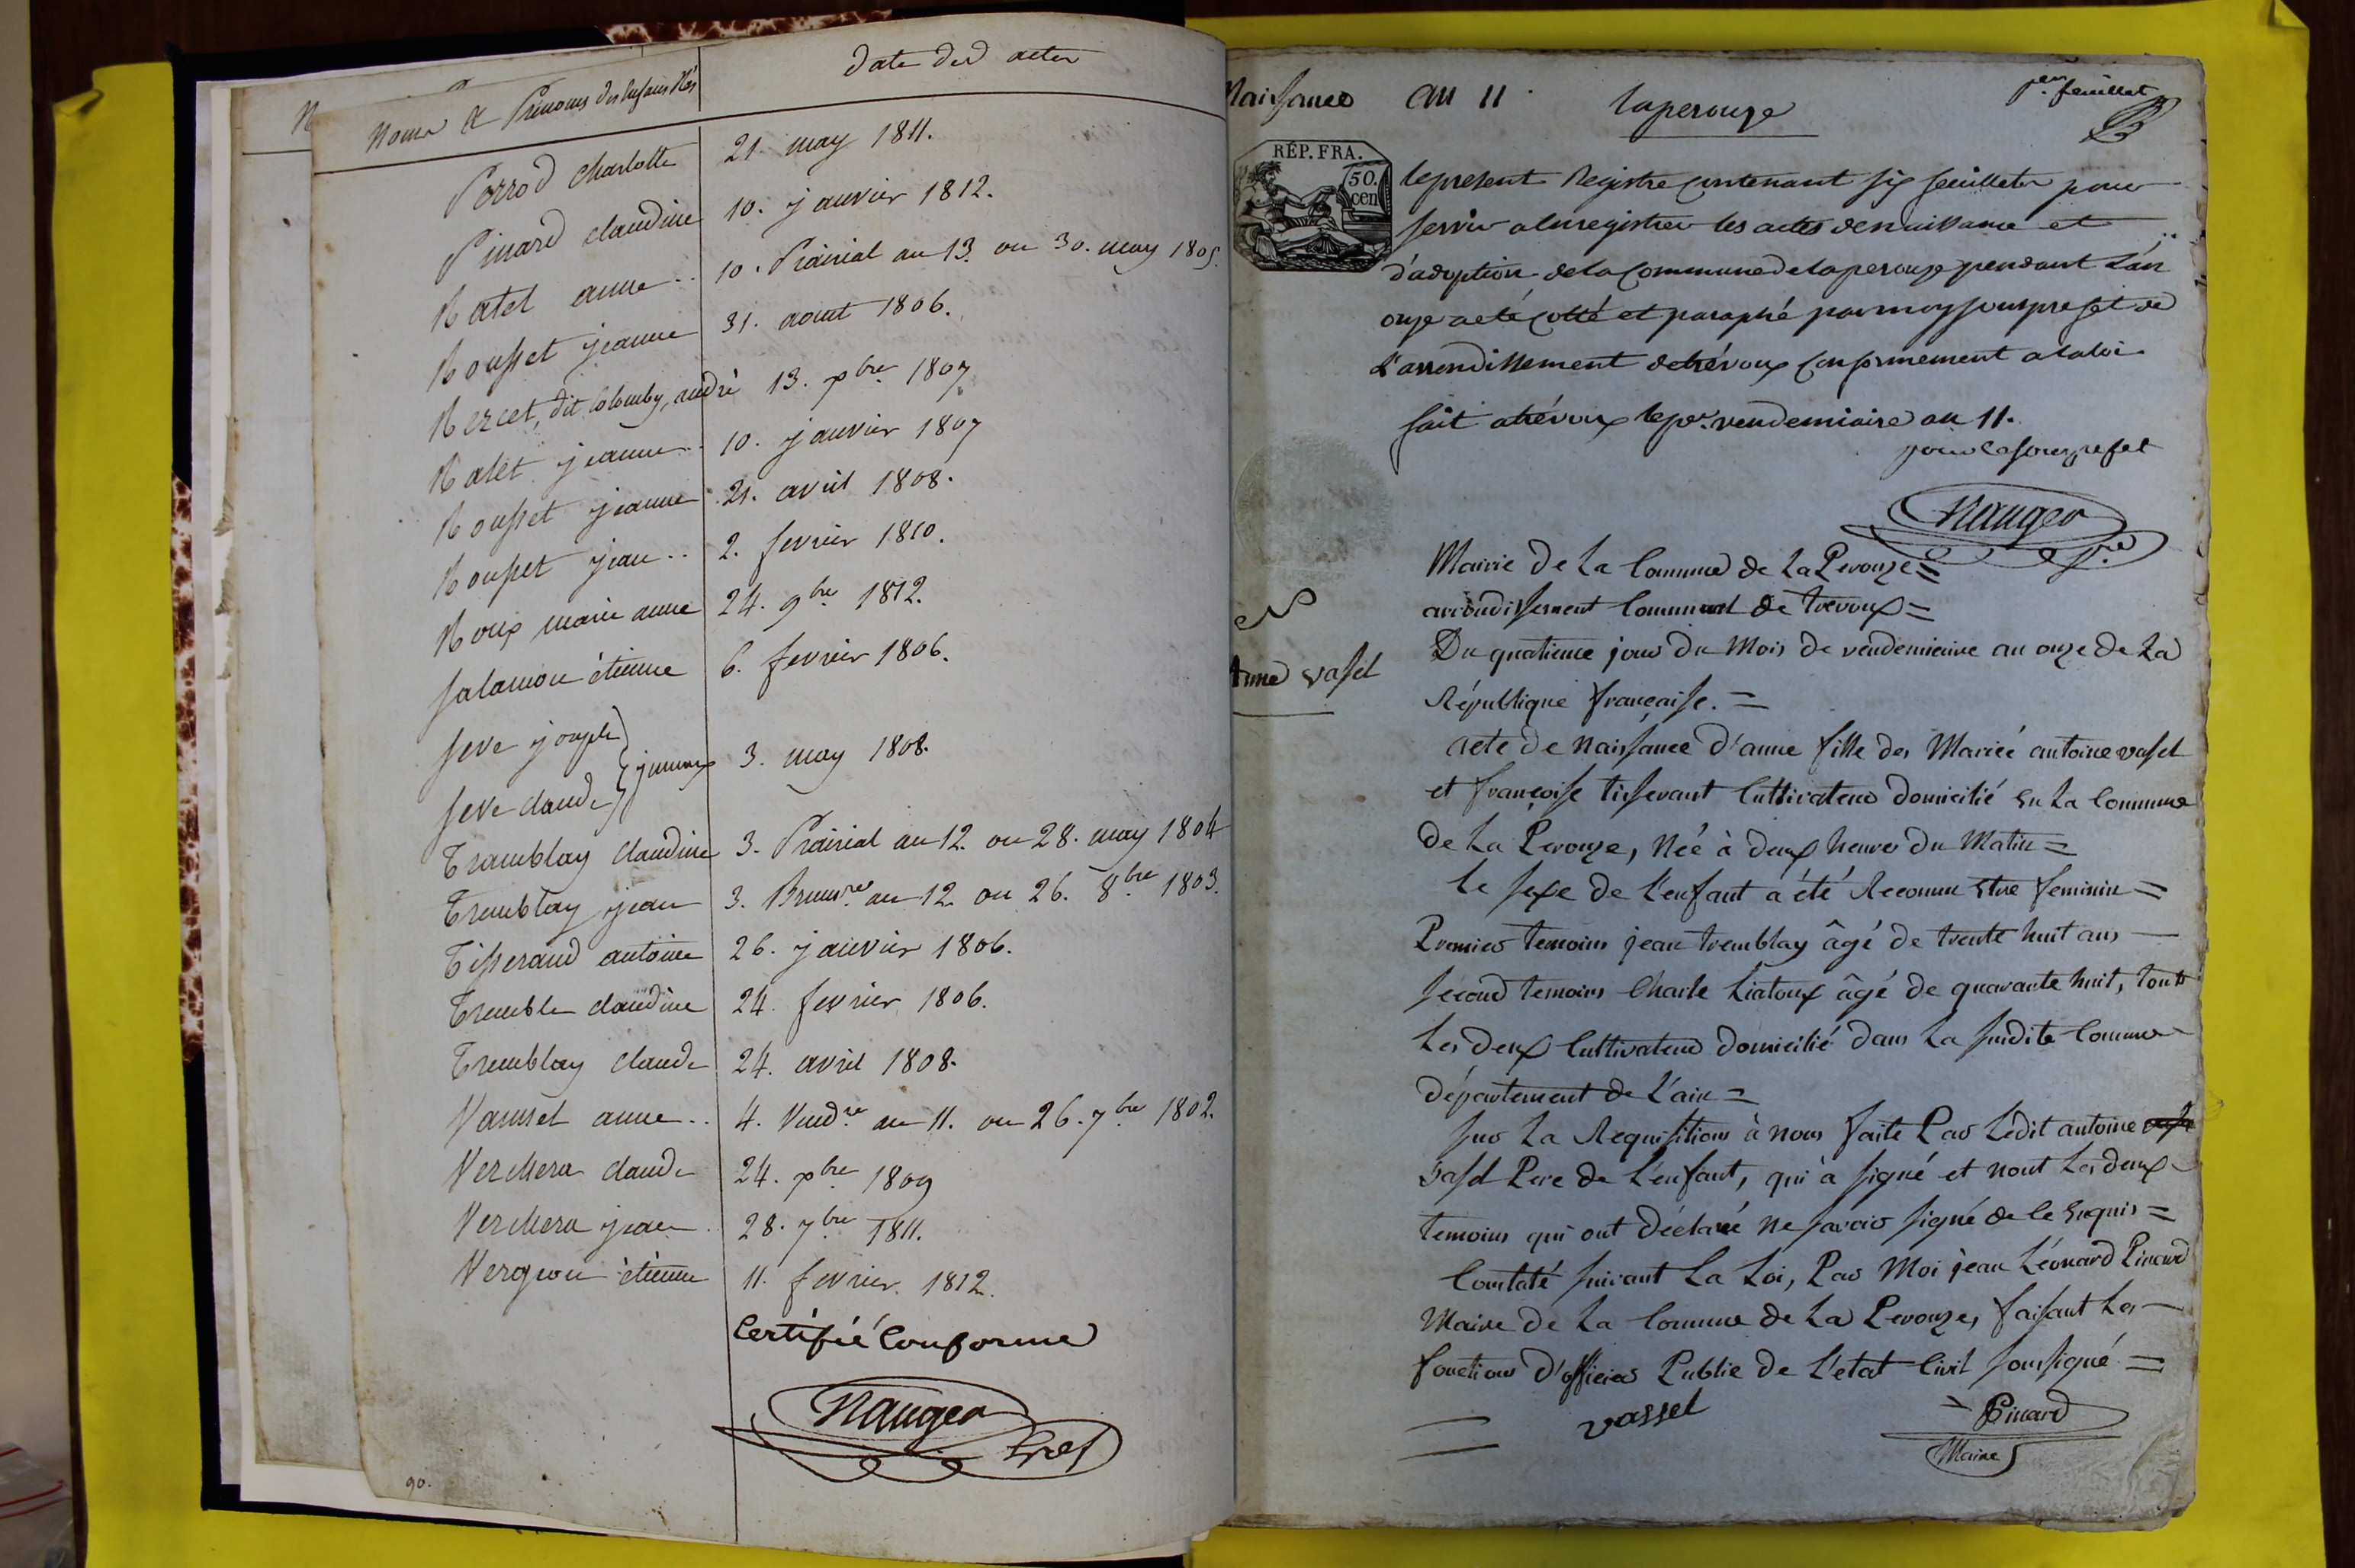 Noms & Prenoms des Enfans Nés
date des actes
Porrod charlotte 21. may 1811.
Pinard claudine 10. janvier 1812.
Ratel anne .. 10. Prairial an 13. ou 30. may 1805.
Rousset jeanne 31. aout 1806.
Rercet, dit Colomby, andré 13. xbre 1807
Ratet jeanne .. 10. janvier 1807
Rousset jeanne 21. avril 1808.
Rousset jean .. 2. fevrier 1810.
Roux marie anne 24. 9bre 1812.
Salamon étienne 6. fevrier 1806.
Seve joseph
jumeaux 3. may 1808.
Seve claude
Tramblay claudine 3. Prairial an 12. ou 28. may 1804
Tremblay jean 3. Brumre an 12. ou 26. 8bre 1803.
Tisserand antoine 26. janvier 1806.
Tremble claudine 24. fevrier 1806.
Tremblay claude 24. avril 1808.
Vaussel anne .. 4. Vendre an 11. ou 26. 7bre 1802.
Verchera claude 24. xbre 1809
Verchera jean . 28. 7bre 1811.
Vergeon étienne 11. fevrier. 1812.
Certifié Conforme
Naugeo
90.
Naissances an 11 . laperouze
1er feuillet
RÉP. FRA.
50.
cen
le present Registre contenant six feuillets pour
servir a enregistrer les actes de naissance et
d'adoption de la Commune de laperouze pendant l'an
onze a eté cotté et paraphé par moy sous prefet de
l'arrondissement de trévoux conformement a la loi
fait a trévoux le per. vendemiaire an 11.
pour le sous prefet
Naugeo
Mairie de La Commune de La Perouze =
arrondissement Communal de trevoux =
Du quatrieme jour Du Mois de vendemiaire an onze de La
République française. =
Anne vassel
acte de Naissance d'anne fille des Mariée antoine vassel
et françoise tisserant Cultivateur domicilié en La Commune
de La Perouze, Née à deux heures Du Matin =
Le sexe de L'enfant à été Reconnu Etre feminin =
Premier temoins jean tremblay âgé de trente huit ans —
second temoins Charle Liatoux âgé de quarante huit, tout
Les deux Cultivateur domicilié dans La susdite Commune
département de L'ain =
sur La Requisition à nous faite Par Ledit antoine
vassel Pere de L'enfant, qui à signé et nont Les deux
temoins qui ont déclaré ne savoir signé de ce Enquis =
Constaté suivant La Loi, Par Moi jean Léonard Pinard
Maire de La Commune de La Perouze, faisant Les —
fonctions d'officier Public de L'etat Civil soussigné =
vassel
Pinard
Maire